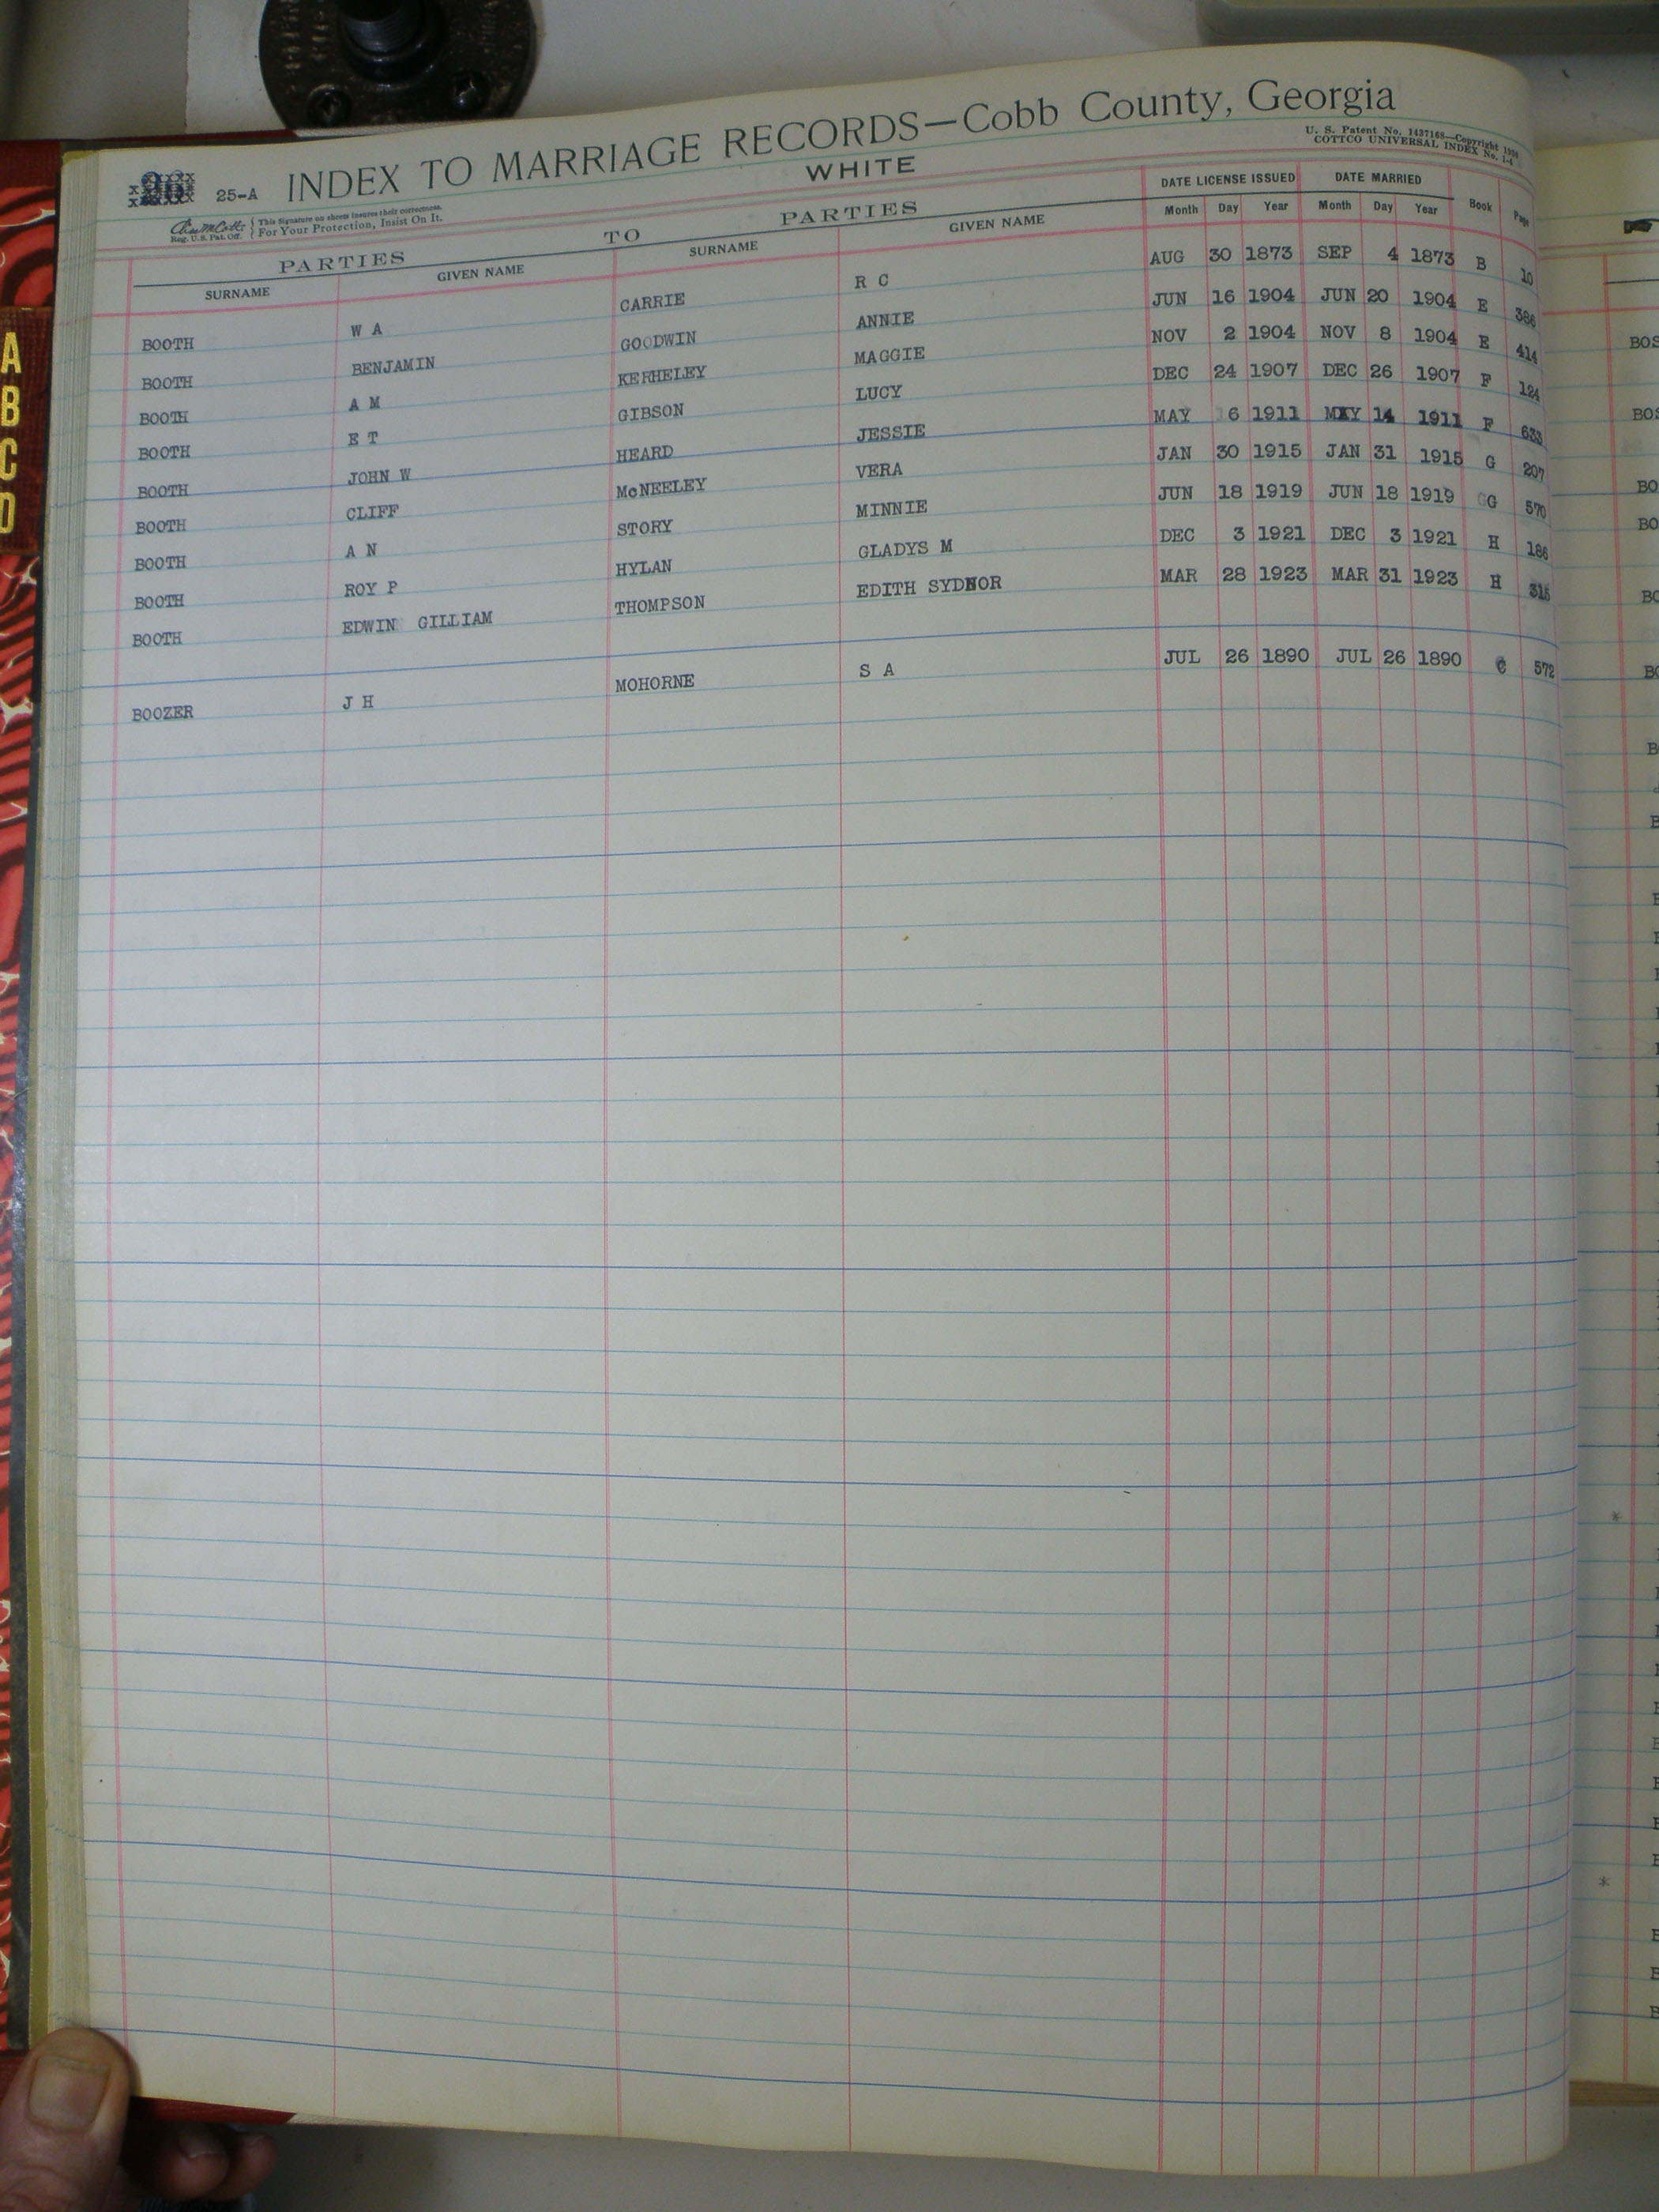 25-A INDEX TO MARRIAGE RECORDS—Cobb County, Georgia
WHITE
U. S. Patent No. 1437168—Copyright
COTTCO UNIVERSAL INDEX No. 1-4
This Signature on sheets insures their correctness.
Reg. U.S. Pat. Off. For Your Protection, Insist On It.
PARTIES TO PARTIES DATE LICENSE ISSUED DATE MARRIED
SURNAME GIVEN NAME SURNAME GIVEN NAME Month Day Year Month Day Year Book Page
BOOTH W A CARRIE R C AUG 30 1873 SEP 4 1873 B 10
BOOTH BENJAMIN GOODWIN ANNIE JUN 16 1904 JUN 20 1904 E 386
BOOTH A M KERHELEY MAGGIE NOV 2 1904 NOV 8 1904 E 414
BOOTH E T GIBSON LUCY DEC 24 1907 DEC 26 1907 F 124
BOOTH JOHN W HEARD JESSIE MAY 6 1911 MAY 14 1911 F 633
BOOTH CLIFF McNEELEY VERA JAN 30 1915 JAN 31 1915 G 207
BOOTH A N STORY MINNIE JUN 18 1919 JUN 18 1919 G 570
BOOTH ROY P HYLAN GLADYS M DEC 3 1921 DEC 3 1921 H 186
BOOTH EDWIN GILLIAM THOMPSON EDITH SYDNOR MAR 28 1923 MAR 31 1923 H 315
BOOZER J H MOHORNE S A JUL 26 1890 JUL 26 1890 C 572
A
B
C
D